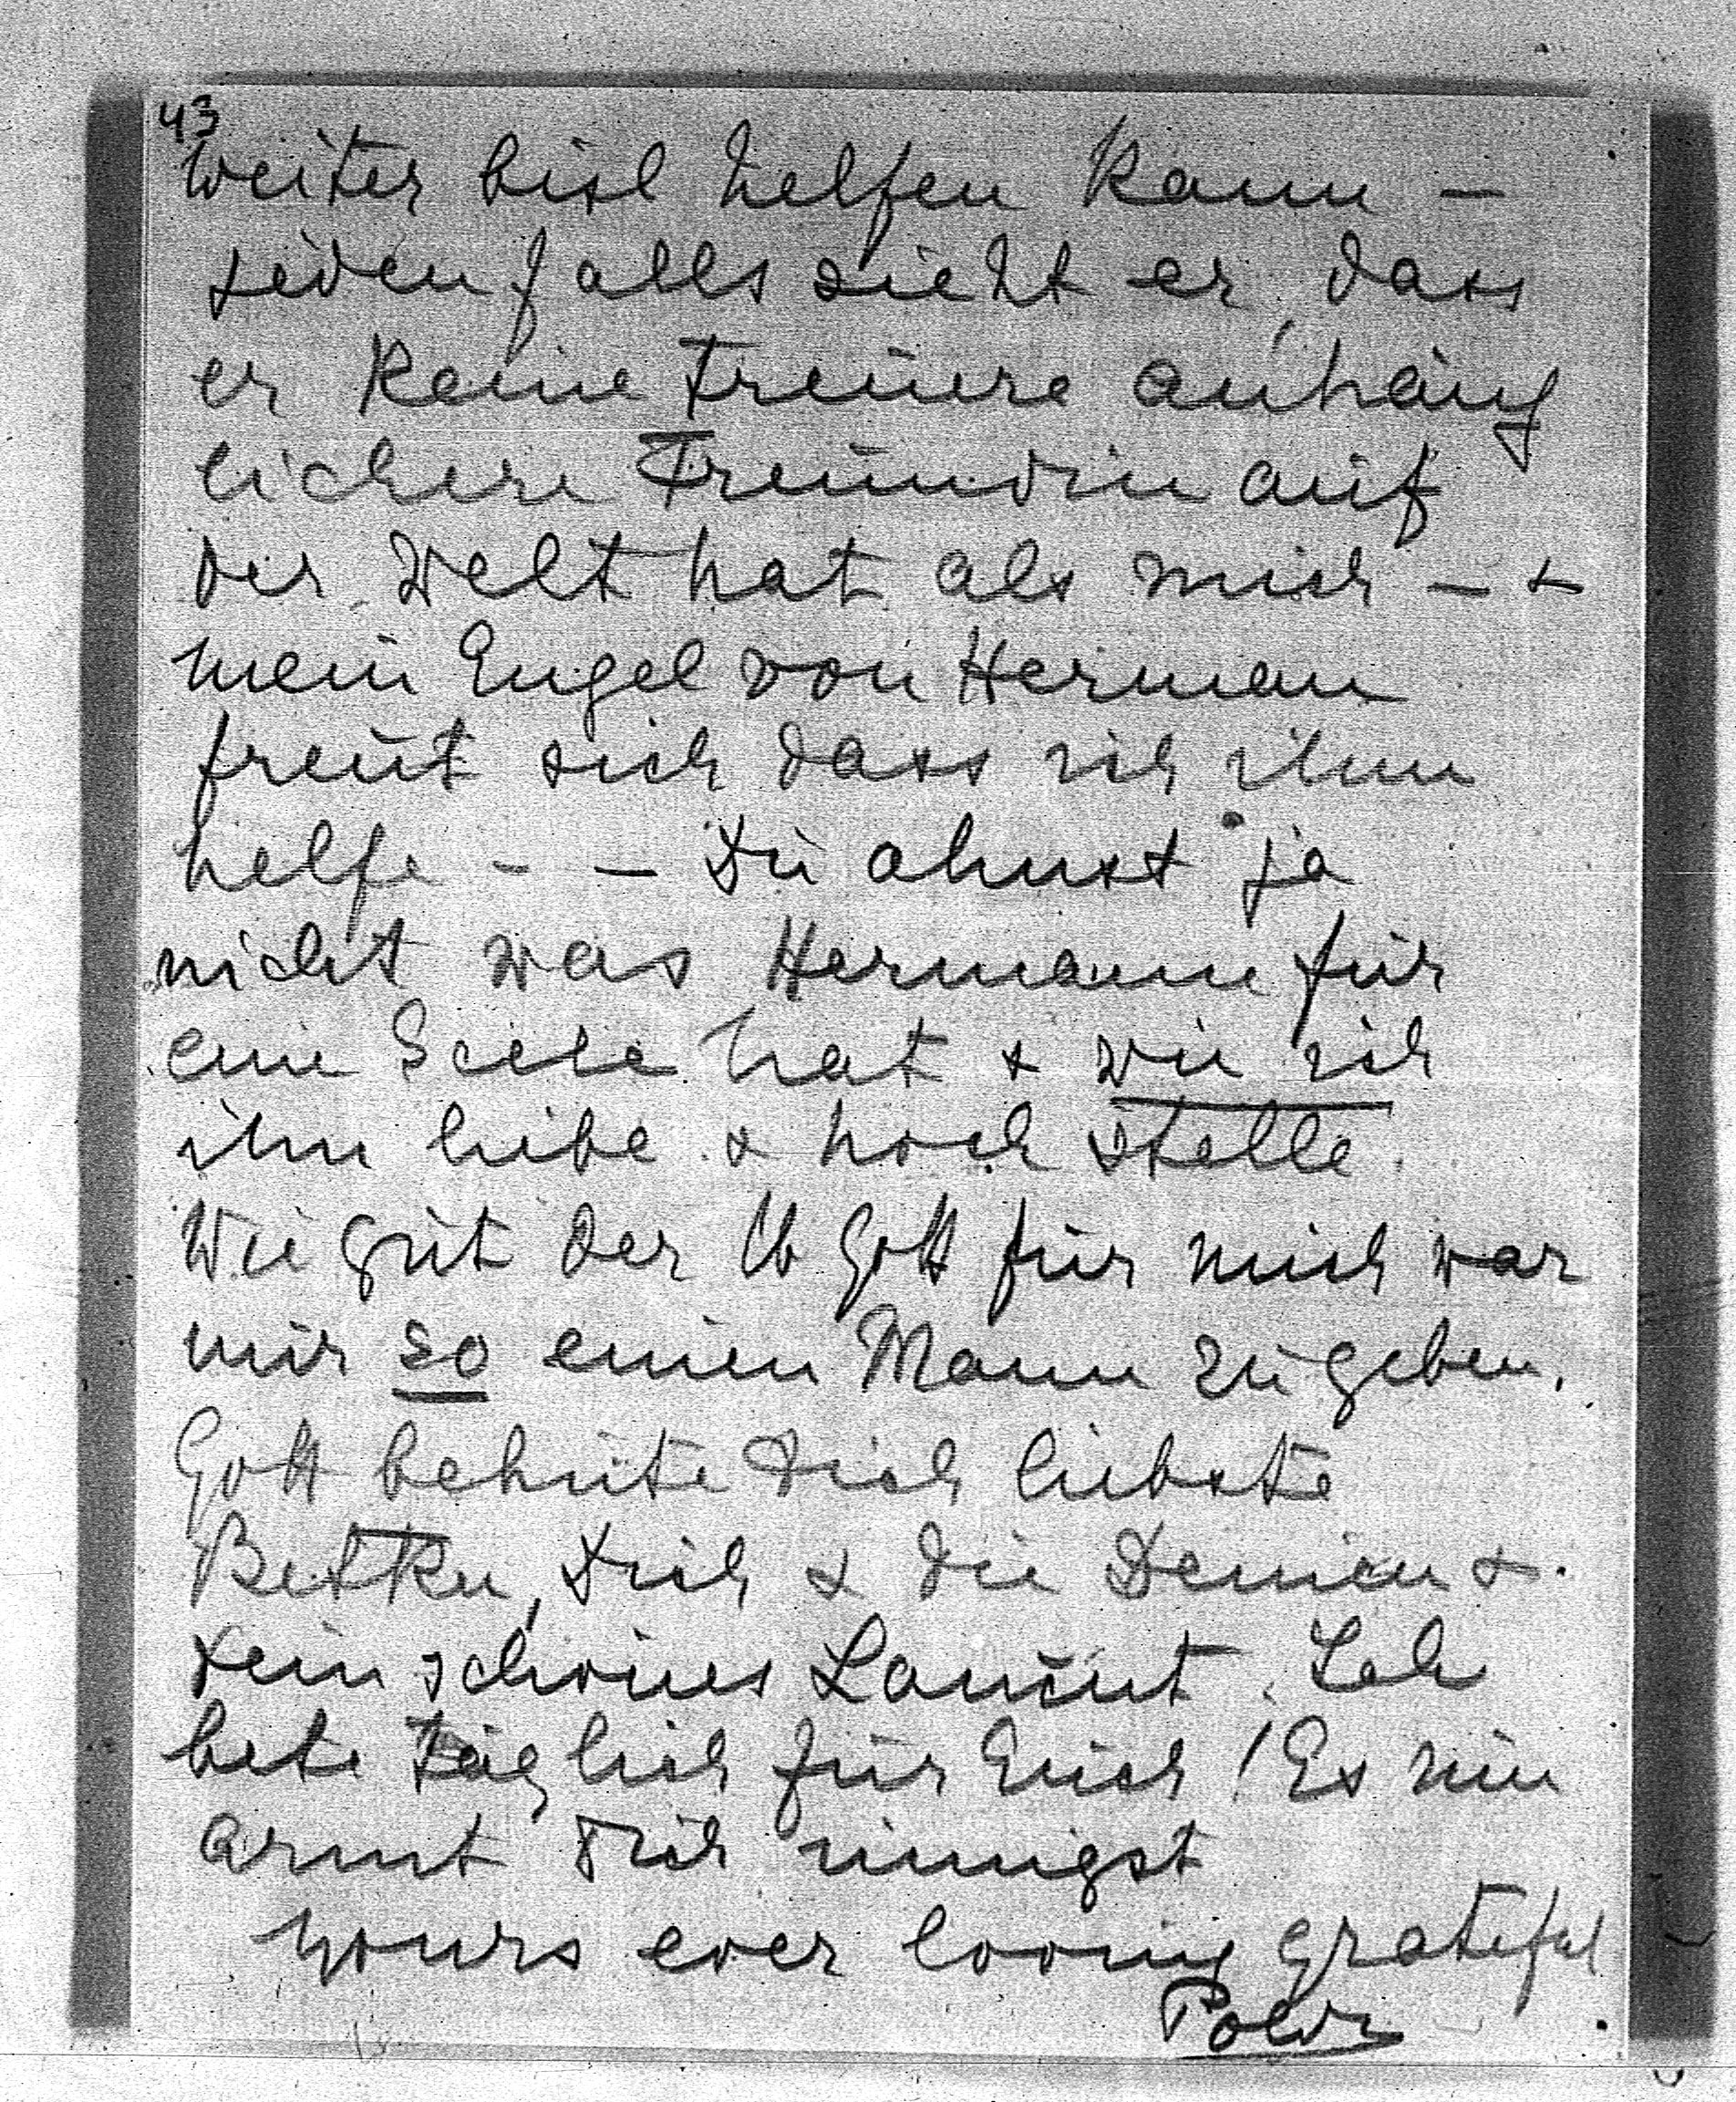 43
weiter bisl helfen kann —
jedenfalls sieht er, dass
er keine treuere anhäng
lichere Freundin auf
der Welt hat als mich — +
mein Engel von Herman
freut sich dass ich ihm
helfe - — Du ahnst ja
nicht was Hermann für
eine Seele hat + wie ich
ihn liebe + hoch stelle.
Wie gut der lb Gott für mich war
mir so einen Mann zu geben.
Gott behüte Dich liebste
Dich + die Deinen +
Dein schönes Ich
bete täglich für Euch! Es um
armt Dich innigst
yours ever loving grateful
Poldi